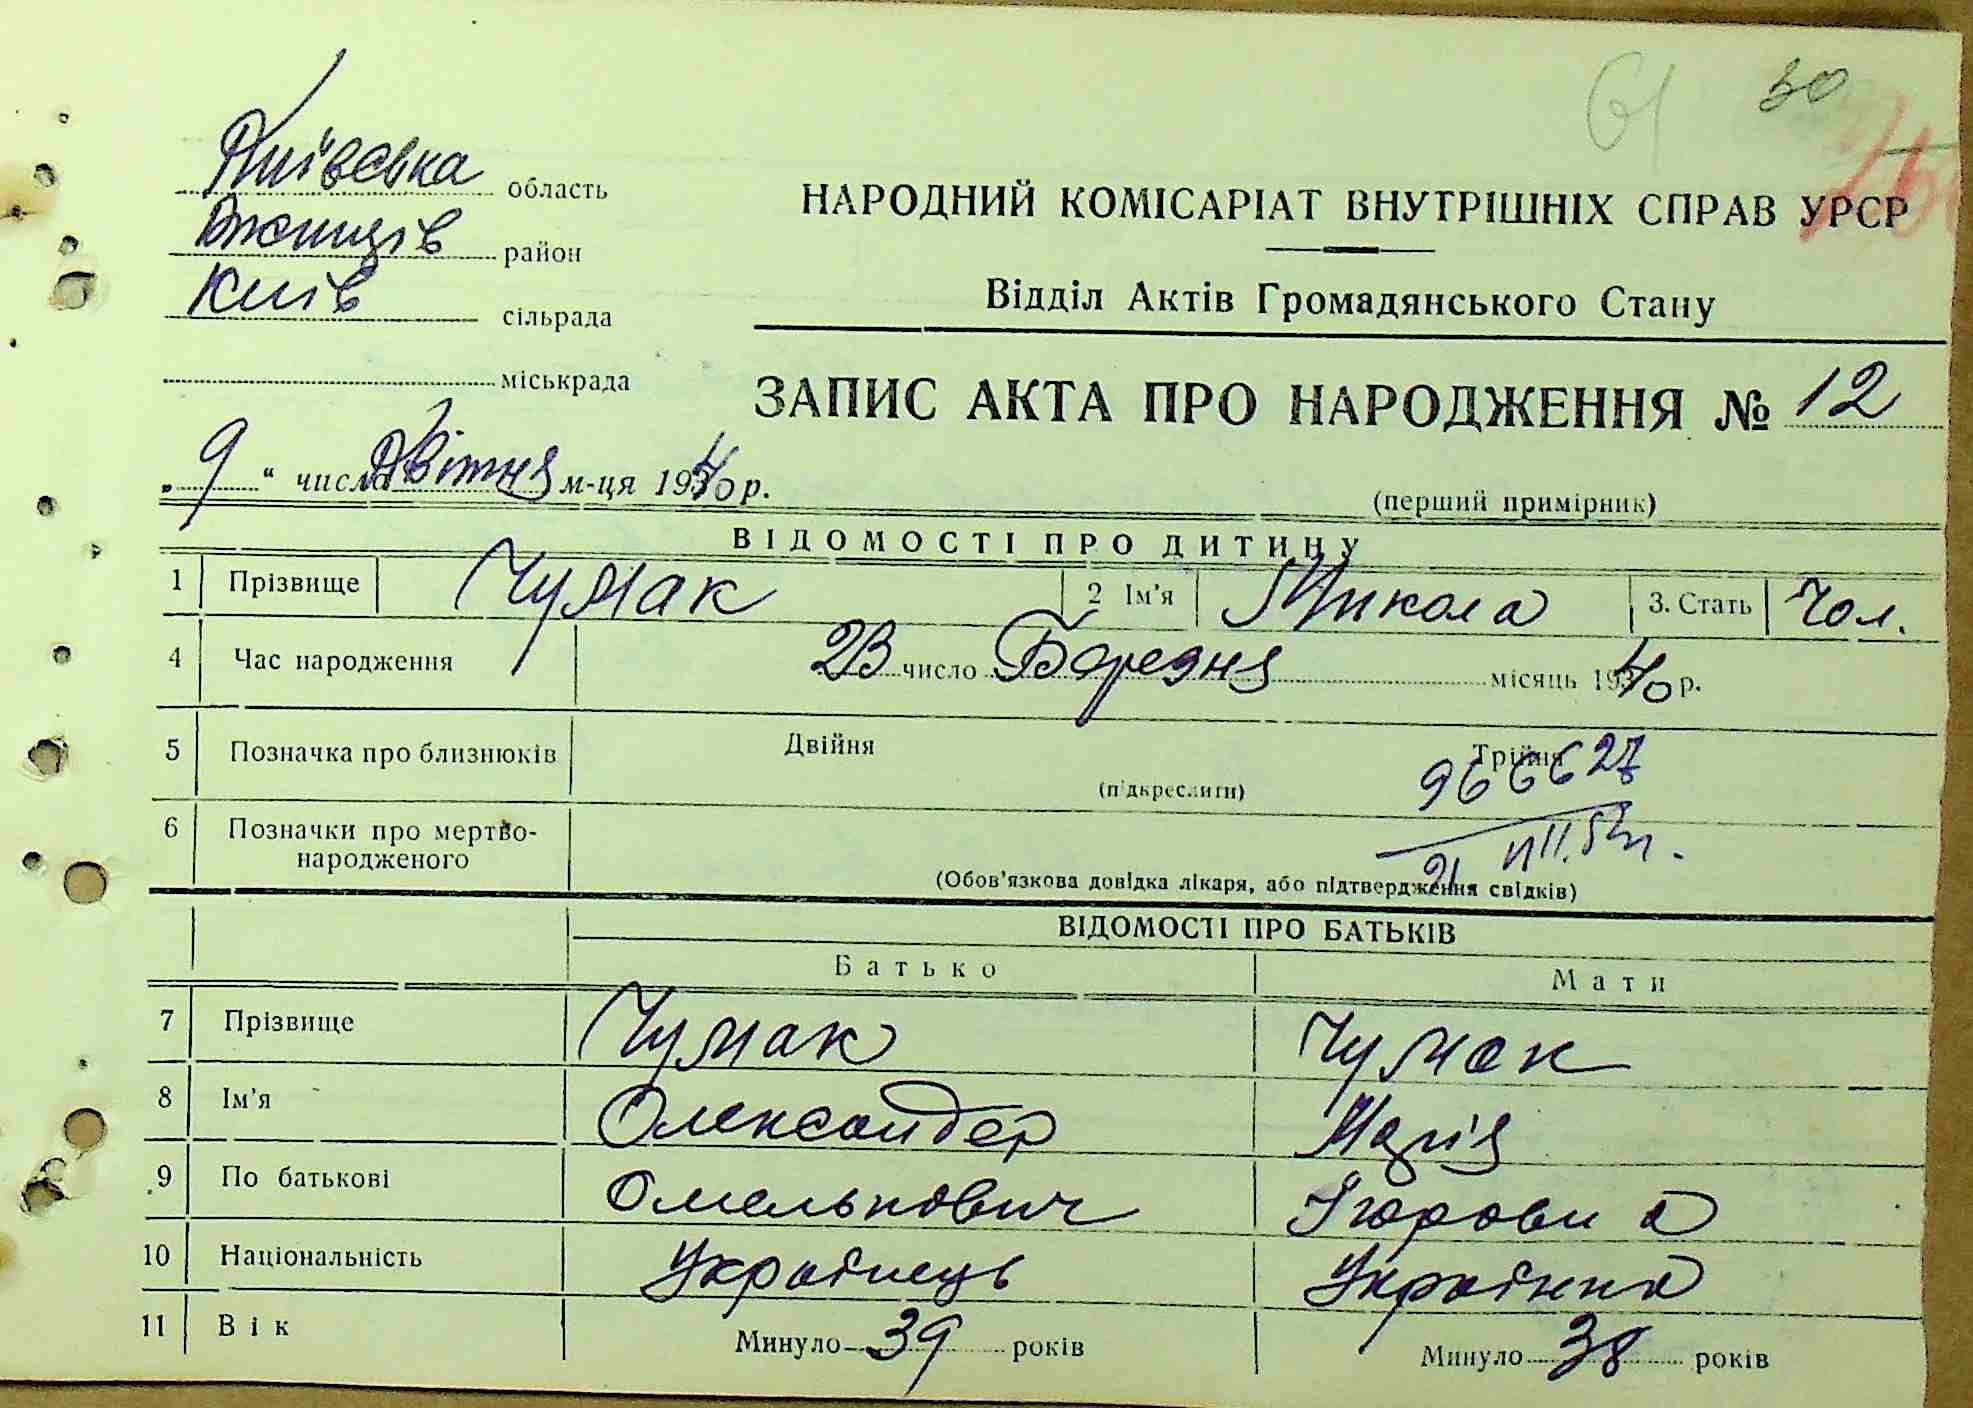 61 30
Київська область
район
Київ сільрада
міськрада
НАРОДНИЙ КОМІСАРІАТ ВНУТРІШНІХ СПРАВ УРСР
Відділ Актів Громадянського Стану
ЗАПИС АКТА ПРО НАРОДЖЕННЯ № 12
„9“ числа Квітня м-ця 1940 р.
(перший примірник)
ВІДОМОСТІ ПРО ДИТИНУ
1 Прізвище Чумак 2 Ім'я Микола 3. Стать Чол.
4 Час народження 23 число Березня місяць 1940 р.
5 Позначка про близнюків Двійня Трійня
(підкреслити)
966627
6 Позначки про мертво-
народженого
21
(Обов'язкова довідка лікаря, або підтвердження свідків)
ВІДОМОСТІ ПРО БАТЬКІВ
Батько Мати
7 Прізвище Чумак Чумак
8 Ім'я Олександер Марія
9 По батькові Омелькович
10 Національність Українець Українка
11 Вік Минуло 39 років Минуло 38 років